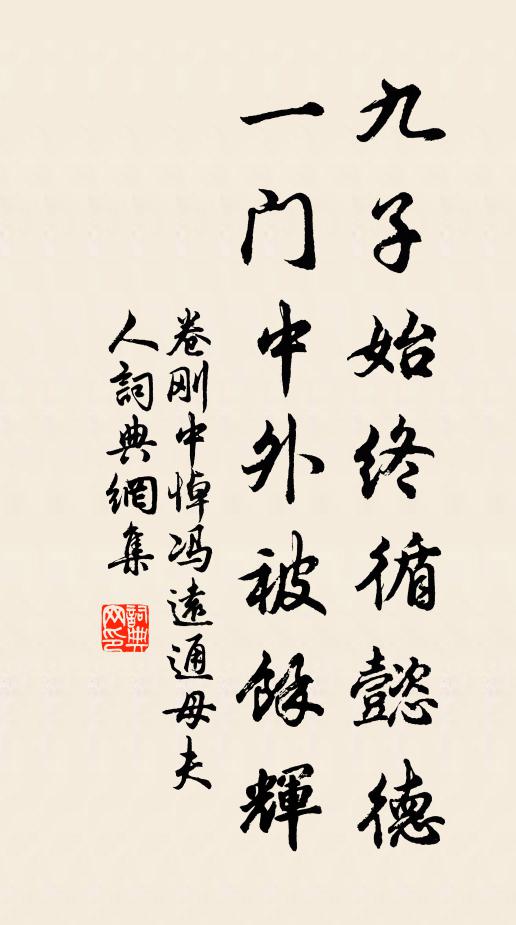 九子始终循懿德
一门中外被馀輝
卷刚中悼冯遠通母夫
人詞典網集
詞典网印